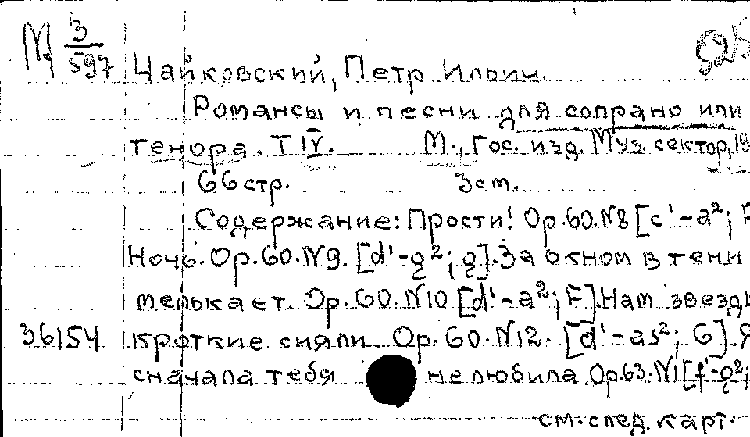 М 3/597
525
Чайковский, Петр Ильич
Романсы и песни для сопрано или
тенора. Т IV. М., Гос. изд. Муз. сектор, 19
66 стр. 3 ст.
Содержание: Прости! Op. 60. N8 [c'-a²; F
Ночь. Op. 60. N9. [d'-g²; g]. За окном в тени
мелькает. Op. 60. N10 [d'-a²; F]. Нам звезды
36154 кроткие сияли. Op. 60. N12. [d'-as²; G]. Я
сначала тебя не любила. Op. 63. N1 [f'-g²;
см. след. карт.